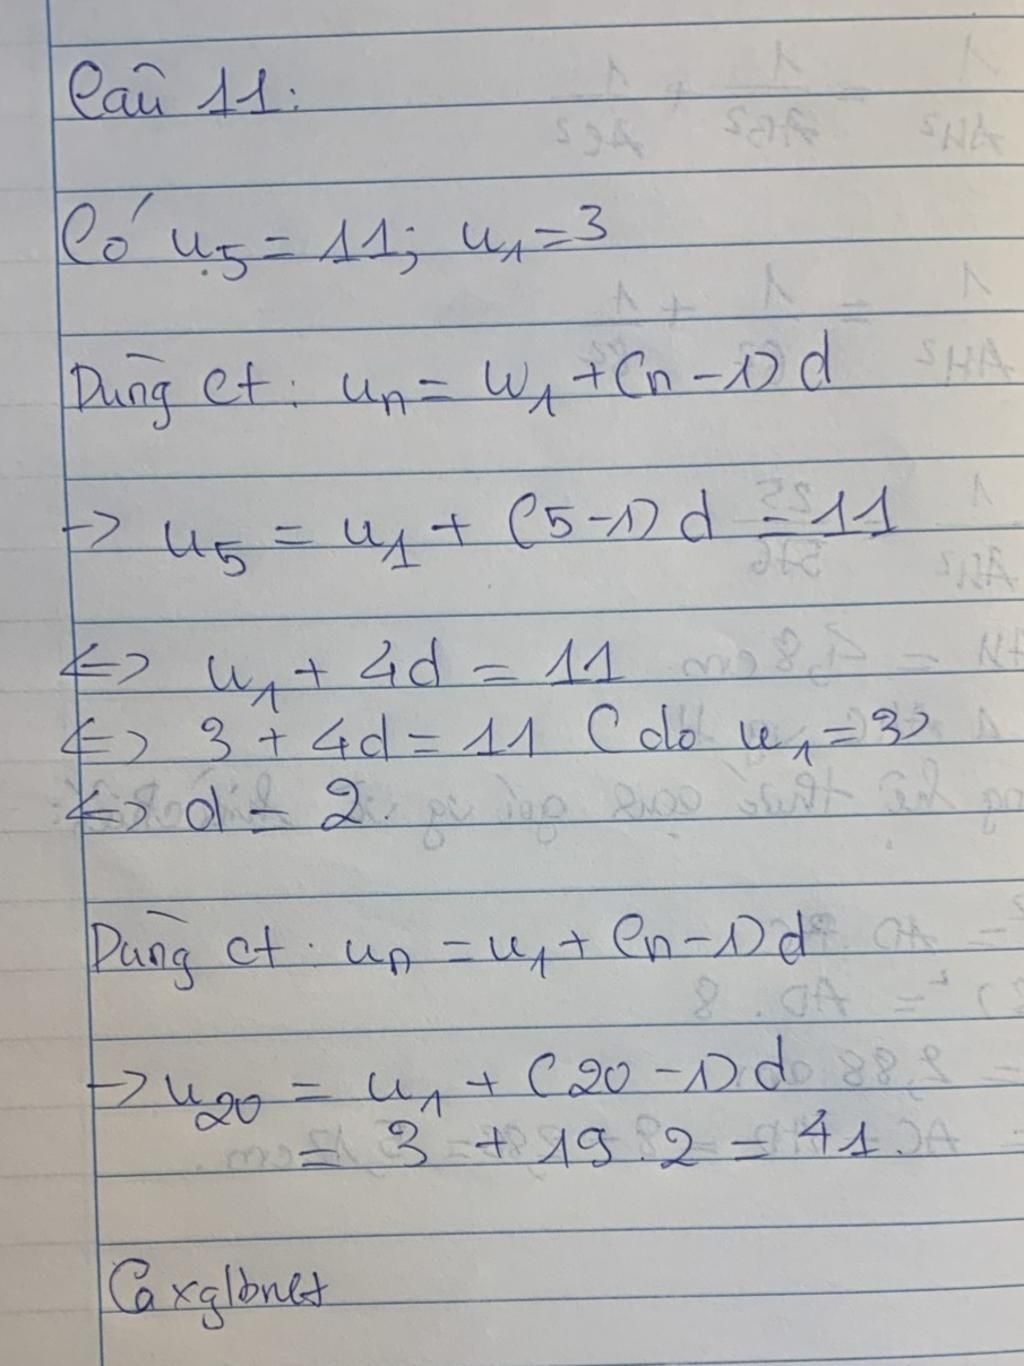 Câu 11:
Có u₅ = 11; u₁ = 3
Dùng ct: uₙ = u₁ + (n - 1) d
-> u₅ = u₁ + (5 - 1) d = 11
<=> u₁ + 4d = 11
<=> 3 + 4d = 11 (do u₁ = 3)
<=> d = 2.
Dùng ct: uₙ = u₁ + (n - 1) d
-> u₂₀ = u₁ + (20 - 1) d
= 3 + 19.2 = 41.